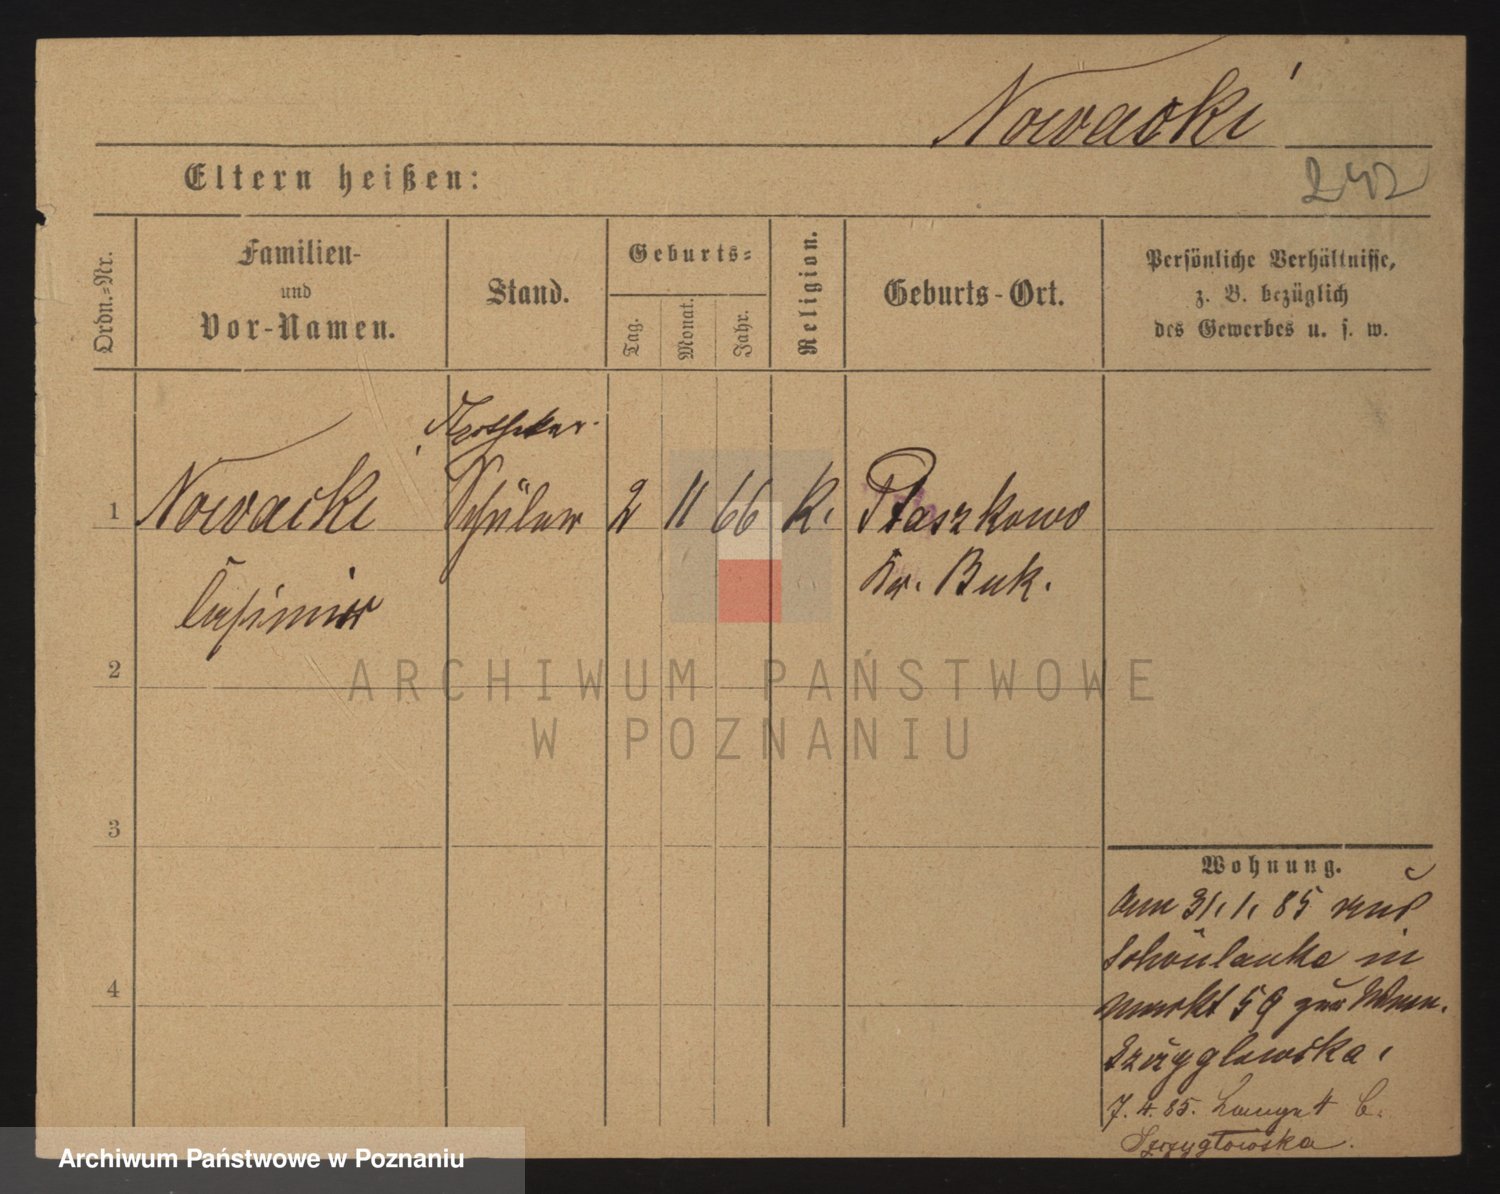 Nowacki
242
Eltern heißen:
Ordn.=Nr.
Familien-
und
Vor-Namen.
Stand.
Geburts=
Tag.
Monat.
Jahr.
Religion.
Geburts-Ort.
Persönliche Verhältnisse,
z. B. bezüglich
des Gewerbes u. s. w.
Apotheker
1 Nowacki Schüler 2 11 66 K. Ptaszkowo
Casimir Kr. Buk.
2
ARCHIWUM PAŃSTWOWE
W POZNANIU
3
Wohnung.
31.1.85
Schönlanke in
4
Markt 59
7.4.85.
Szczyglowska.
Archiwum Państwowe w Poznaniu